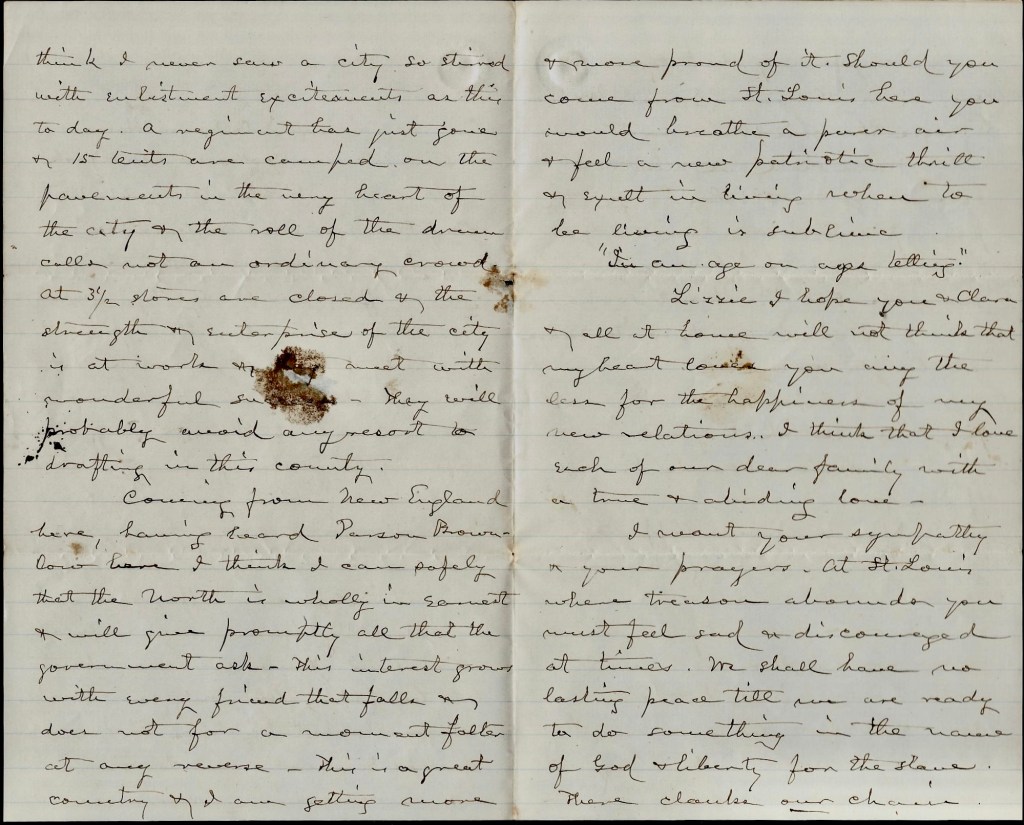 think I never saw a city so stirred
with enlistment excitements as this
to day. A regiment has just gone
& 15 tents are camped on the
pavements in the very heart of
the city & the roll of the drum
calls not an ordinary crowd
at 3 1/2 stores are closed & the
strength & enterprise of the city
is at work & meet with
wonderful - They will
probably avoid any resort to
drafting in this county.
Coming from New England
here, having heard Parson Brown-
low here I think I can safely
that the North is wholly in earnest
& will give promptly all that the
government ask - This interest grows
with every friend that falls &
does not for a moment falter
at any reverse - This is a great
country & I am getting more
& more proud of it. Should you
come from St. Louis here you
would breathe a purer air
& feel a new patriotic thrill
& exult in living when to
be living is sublime
"In an age on ages telling."
Lizzie I hope you & Clara
& all at home will not think that
my heart loves you any the
less for the happiness of my
new relations. I think that I love
each of our dear family with
a true & abiding love -
I want your sympathy
& your prayers. At St. Louis
where treason abounds you
must feel sad & discouraged
at times. We shall have no
lasting peace till we are ready
to do something in the name
of God & liberty for the slave.
There clanks our chain.